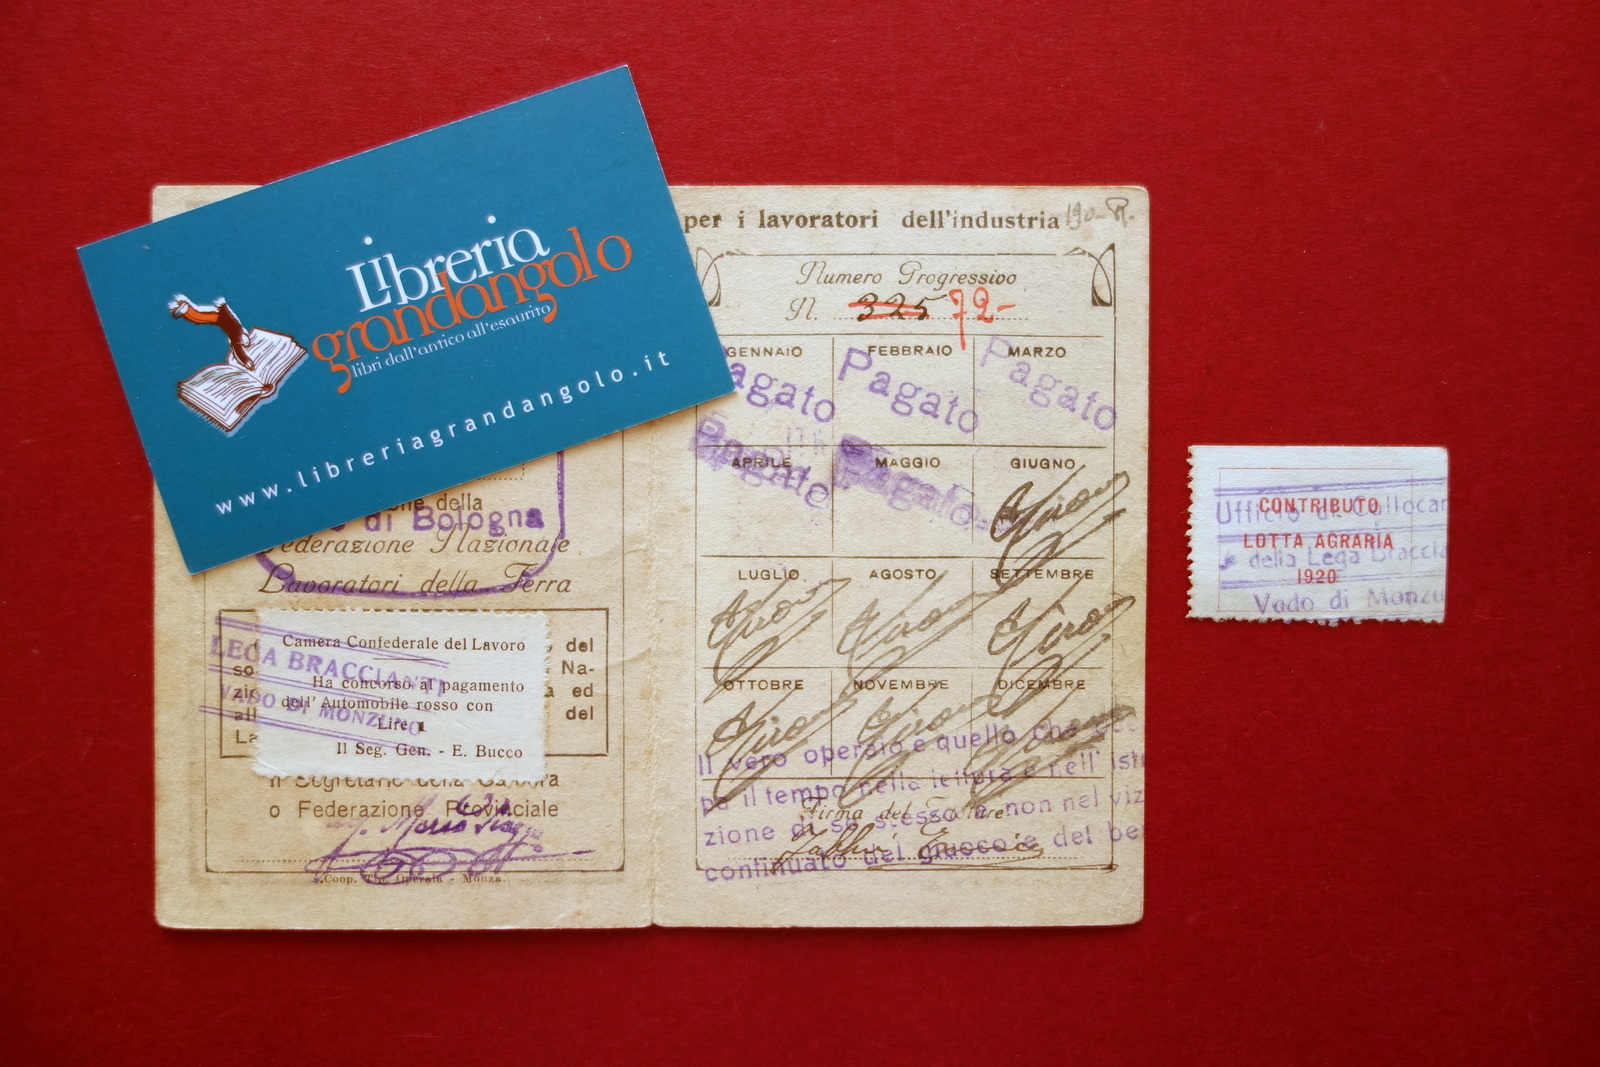 Libreria
grandangolo
libri dall'antico all'esaurito
www.libreriagrandangolo.it
della
di Bologna
Federazione Nazionale
Lavoratori della Terra
Camera Confederale del Lavoro
Ha concorso al pagamento
dell' Automobile rosso con
Lire 1
Il Seg. Gen. - E. Bucco
LEGA BRACCIANTI
VADO DI MONZUNO
del
so Na-
zio ed
all del
La
Il Segretario della Camera
o Federazione Provinciale
Coop. Tip. Operaia - Monza.
per i lavoratori dell'industria
Numero Progressivo
N. 325 72-
GENNAIO FEBBRAIO MARZO
Pagato Pagato Pagato
APRILE MAGGIO GIUGNO
Pagato Pagato
LUGLIO AGOSTO SETTEMBRE
OTTOBRE NOVEMBRE DICEMBRE
Il vero operaio e quello che
pa il tempo nella lettura e nell' istru
Firma del Titolare
zione di se stesso e non nel viz
continuato del giuoco e del be
CONTRIBUTO
LOTTA AGRARIA
1920
Ufficio di Collocam
della Lega Braccia
Vado di Monzu